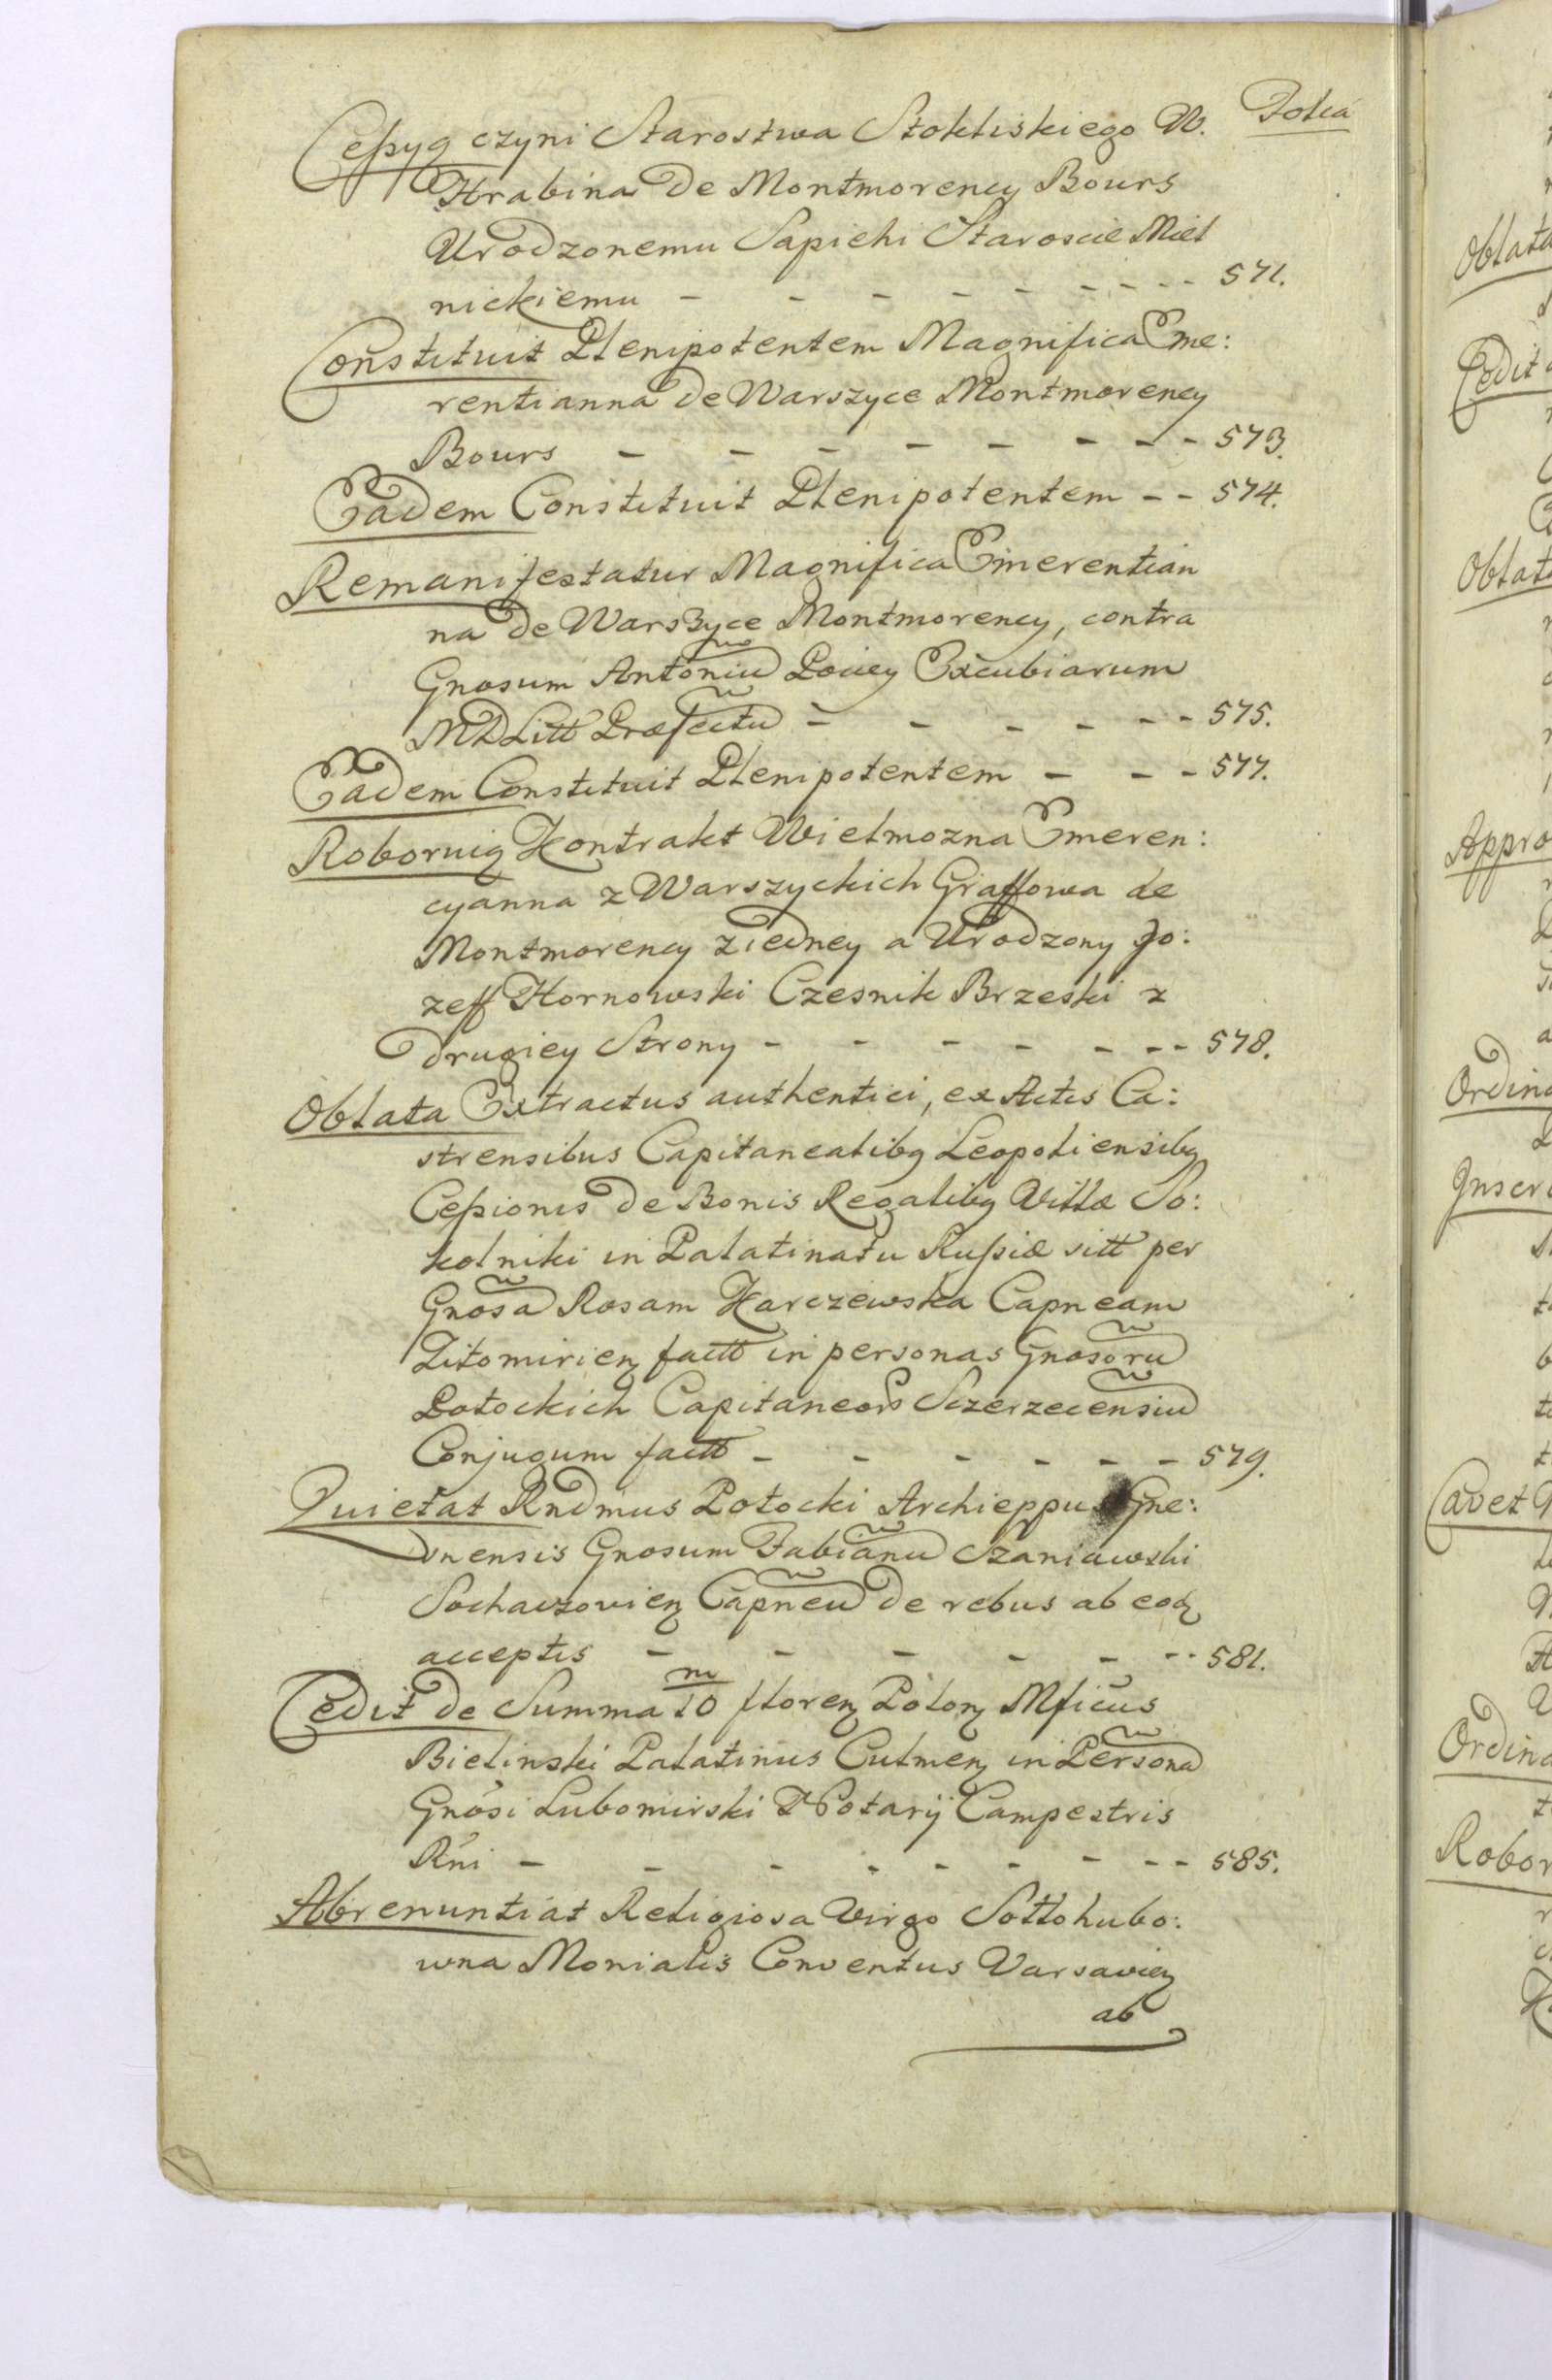 Folia
Cessyą czyni Starostwa Stokliskiego W.
Hrabina de Montmorency Bours
Urodzonemu Sapiehi Staroscie Miel
nickiemu - - - - - - - - 571.
Constituit Plenipotentem Magnifica Eme:
rentianna de Warszyce Montmorency
Bours - - - - - - - - 573.
Eadem Constituit Plenipotentem - - 574.
Remanifestatur Magnifica Emerentian
na de Warszyce Montmorency, contra
Gnosum Antoniũ Pouey Excubiarum
MDLitt Præfectũ - - - - - - 575.
Eadem Constituit Plenipotentem - - - 577.
Roboruią Kontrakt Wielmozna Emeren:
cyanna z Warszyckich Graffowa de
Montmorency z iedney a Urodzony Jo:
zeff Hornowski Czesnik Brzeski z
drugiey Strony - - - - - - - 578.
Oblata Extractus authentici, ex Actis Ca:
strensibus Capitanealibq Leopoliensibq
Cessionis de Bonis Regalibq Villæ So:
kolniki in Palatinatu Russiæ sitt per
Gnosã Rosam Karczewska Capneam
Zitomirien factt in personas Gnosorũ
Potockich Capitaneors Sczerzecensiũ
Conjugum factt - - - - - - 579.
Quietat Rndmus Potocki Archieppus Gne:
snensis Gnosum Fabianũ Szaniawski
Sochaczovien Capneũ de rebus ab eod
acceptis - - - - - - - 581.
Cedit de Summa 10 m floren Polon Mficus
Bielinski Palatinus Culmen in Personã
Gnosi Lubomirski Notarij Campestris
Rni - - - - - - - - - 585.
Abrenuntiat Religiosa Virgo Sottohubo:
wna Monialis Conventus Varsavien
ab
Oblata
Cedit
Oblat
Appro
Ordin
Inser
Cavet
Ordin
Robor